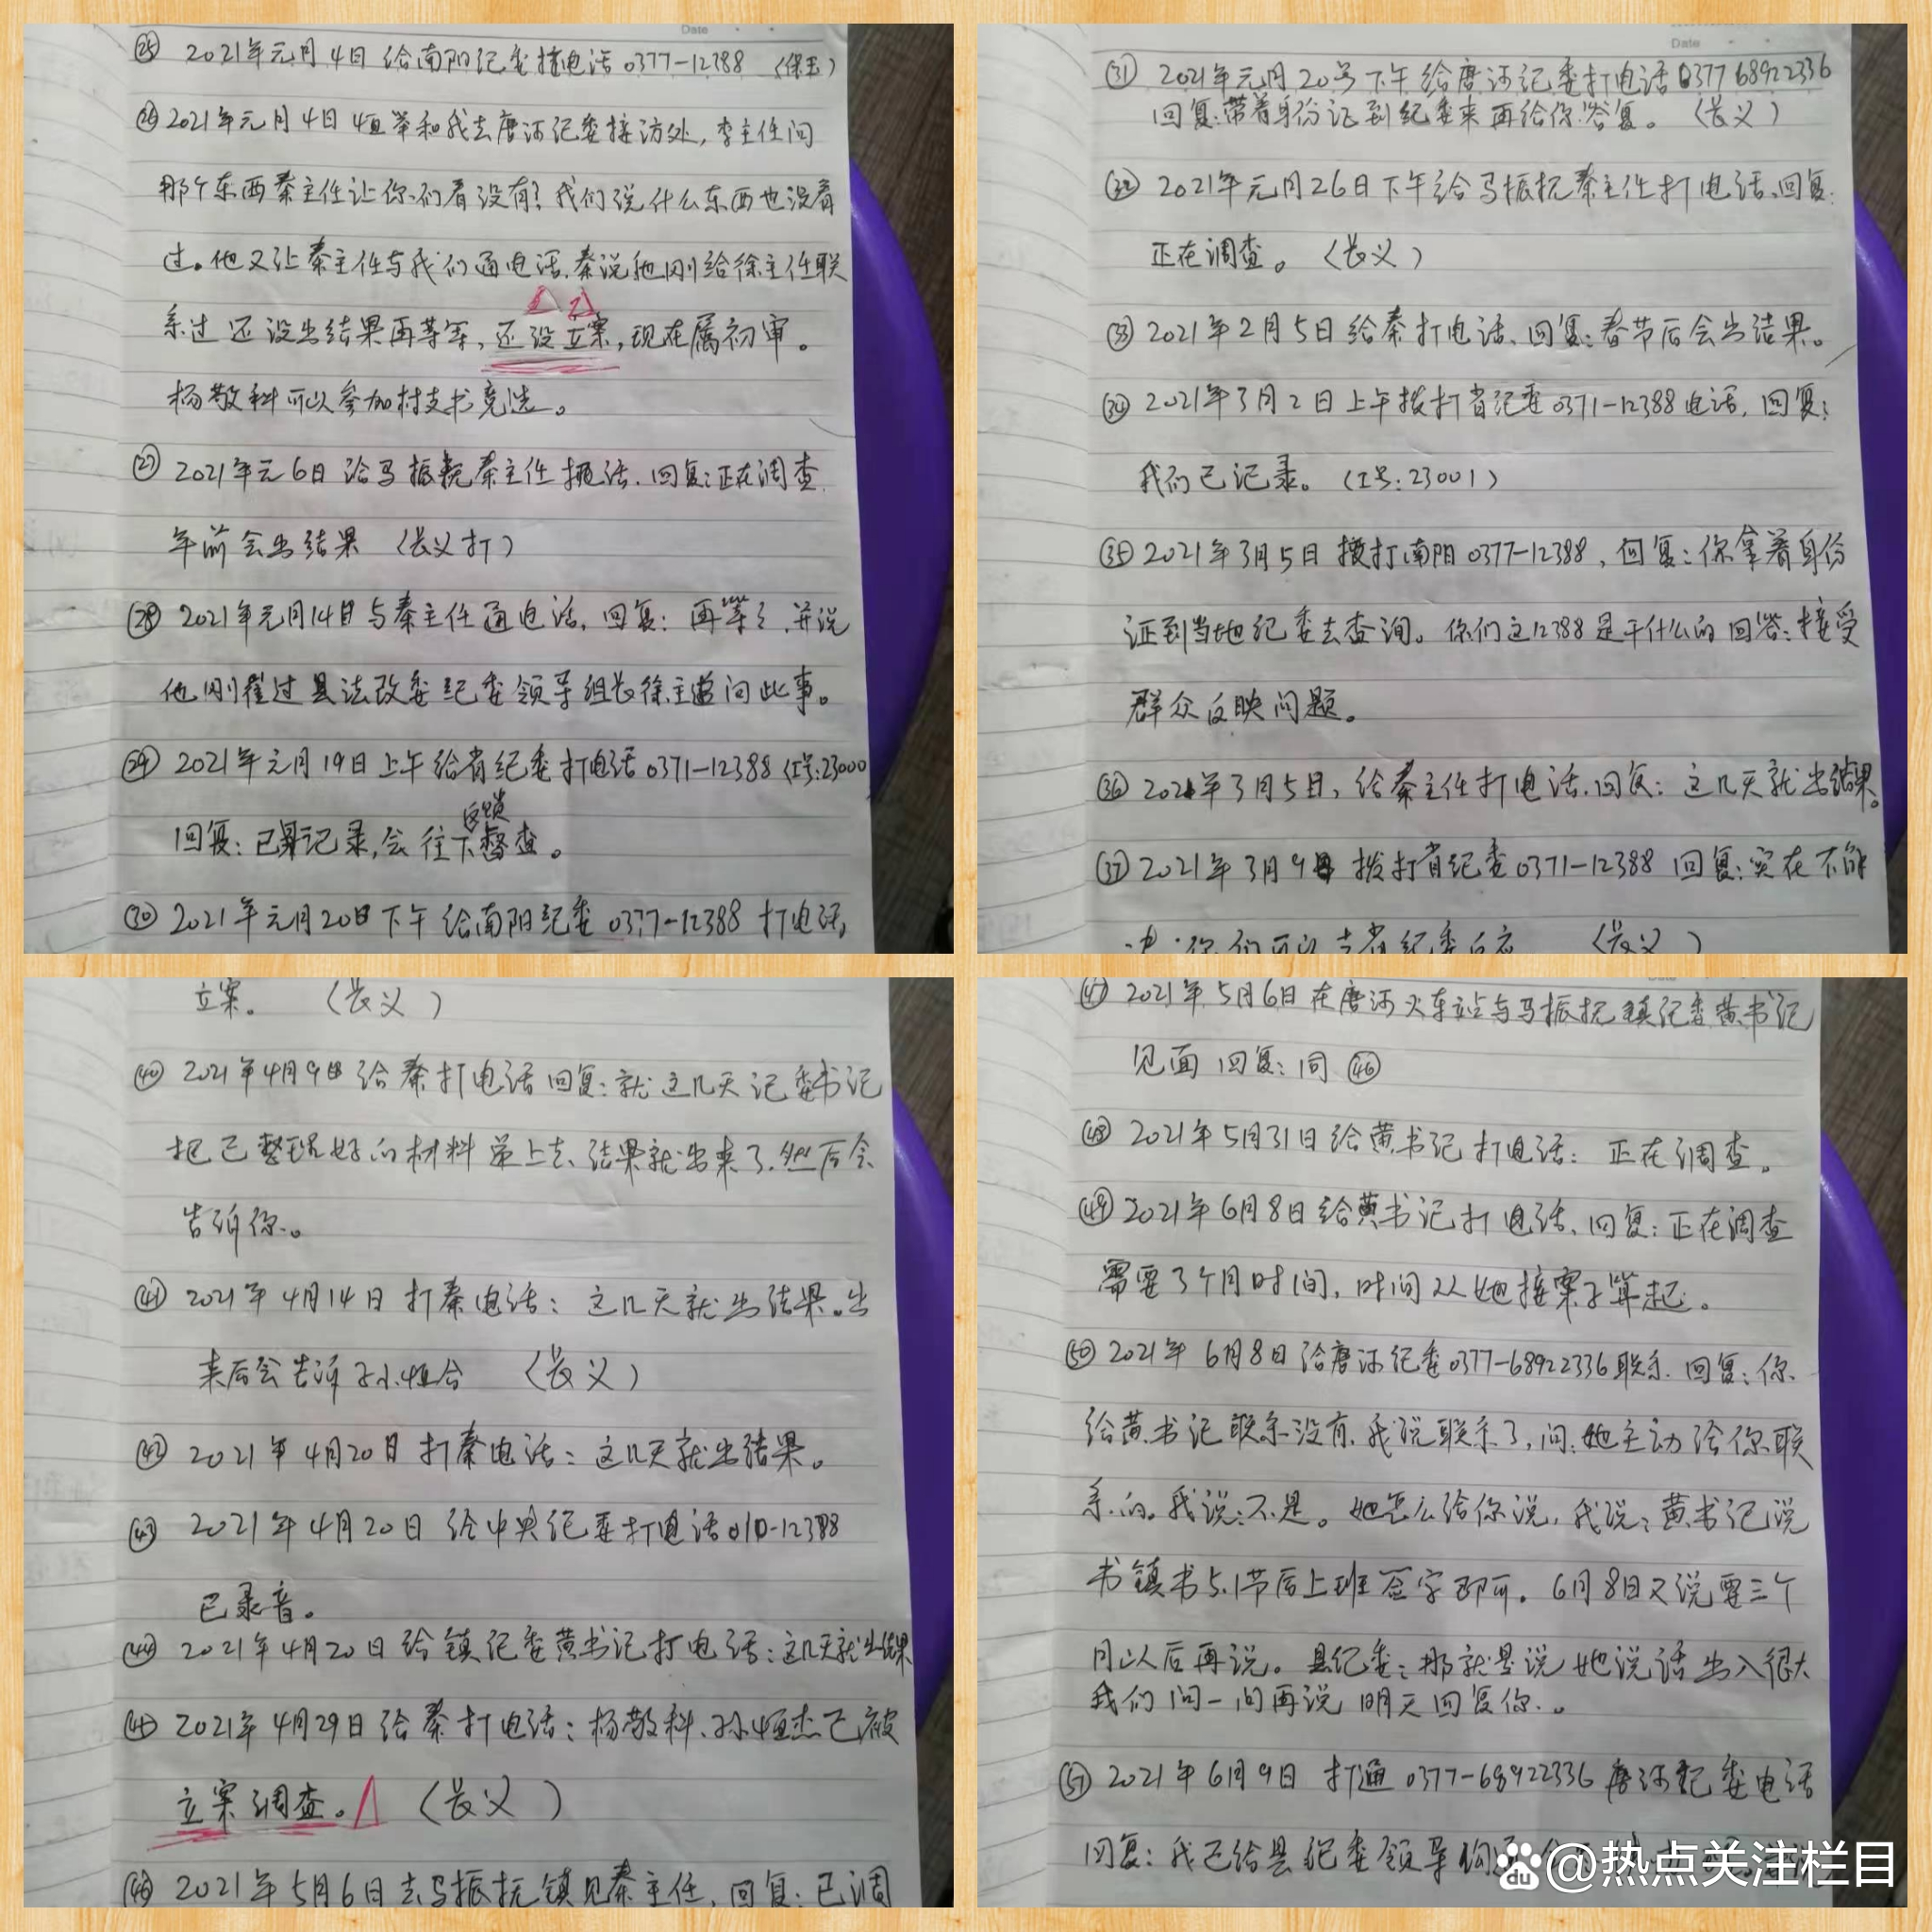 Date
㉕ 2021年元月4日给南阳纪委打电话0377-12388 (保玉)
㉖ 2021年元月4日恒举和我去唐河纪委接访处,李主任问
那个东西秦主任让你们看没有?我们说什么东西也没看
过。他又让秦主任与我们通电话,秦说他刚给徐主任联
系过还没出结果再等等,还没立案,现在属初审。
杨敬科可以参加村支书竞选。
㉗ 2021年元6日给马振抚秦主任打电话.回复:正在调查
年前会出结果 (长义打)
㉘ 2021年元月14日与秦主任通电话,回复:再等等.并说
他刚催过县法改委纪委领导组长徐主任问此事。
㉙ 2021年元月19日上午给省纪委打电话0371-12388(工号:23000
回复:已记录,会往下督查。
㉚ 2021年元月20日下午给南阳纪委0377-12388打电话,
Date
㉛ 2021年元月20号下午给唐河纪委打电话0377 68922336
回复:带着身份证到纪委来再给你答复。(长义)
㉜ 2021年元月26日下午给马振抚秦主任打电话、回复:
正在调查。(长义)
㉝ 2021年2月5日给秦打电话、回复:春节后会出结果。
㉞ 2021年3月2日上午拨打省纪委0371-12388电话,回复:
我们已记录。(工号:23001)
㉟ 2021年3月5日拨打南阳0377-12388,回复:你拿着身份
证到当地纪委去查询。你们这12388是干什么的回答:接受
群众反映问题。
㊱ 2021年3月5日,给秦主任打电话.回复:这几天就出结果。
㊲ 2021年3月9日拨打省纪委0371-12388回复:实在不能
你们可以去省纪委 (长义)
立案。(长义)
㊵ 2021年4月9日给秦打电话回复:就这几天记委书记
把已整理好的材料递上去、结果就出来了.然后会
告诉你。
㊶ 2021年4月14日打秦电话:这几天就出结果。出
来后会告诉孙恒合 (长义)
㊷ 2021年4月20日打秦电话:这几天就出结果。
㊸ 2021年4月20日给中央纪委打电话010-12388
已录音。
㊹ 2021年4月20日给镇纪委黄书记打电话:这几天就出结果
㊺ 2021年4月29日给秦打电话:杨敬科、孙恒杰已被
立案调查。(长义)
㊻ 2021年5月6日去马振抚镇见秦主任,回复:已调
㊼ 2021年5月6日在唐河火车站与马振抚镇纪委黄书记
见面回复:同㊻
㊽ 2021年5月31日给黄书记打电话:正在调查。
㊾ 2021年6月8日给黄书记打电话、回复:正在调查
需要3个月时间,时间从她接案子算起。
㊿ 2021年6月8日给唐河纪委0377-68922336联系.回复:你
给黄书记联系没有.我说联系了,问:她主动给你联
系的。我说:不是。她怎么给你说,我说:黄书记说
书镇书5.1节后上班签字即可。6月8日又说要三个
月以后再说。县纪委:那就是说她说话出入很大
我们问一问再说明天回复你。
51 2021年6月9日打通0377-68922336唐河纪委电话
回复:我已给县纪委领导沟通
du @热点关注栏目